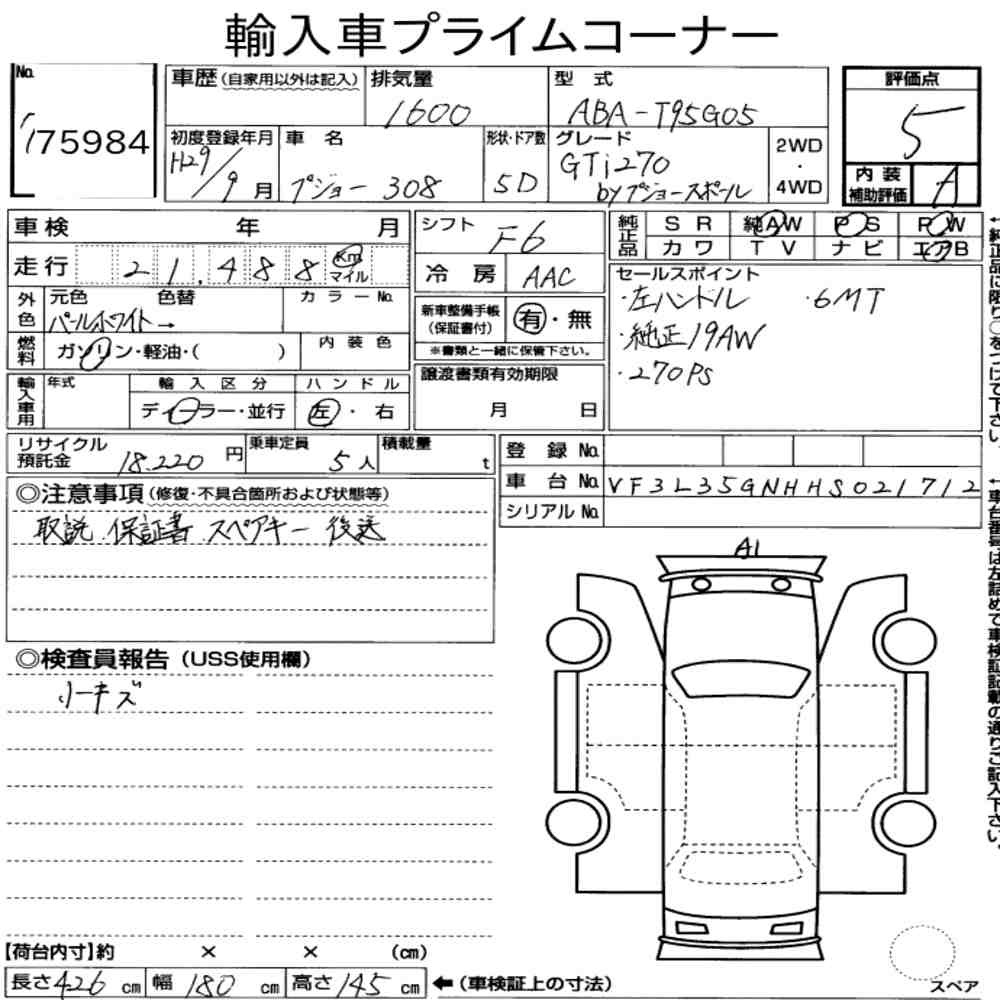 輸入車プライムコーナー
No.
175984
車歴 (自家用以外は記入) 排気量 1600
型式 ABA-T95G05
評価点 5
初度登録年月 H29/9月
車名 プジョー 308
形状・ドア数 5D
グレード GTi270 byプジョースポール
2WD・4WD
内装補助評価 A
車検 年 月
シフト F6
純正品 SR 純AW PS PW
カワ TV ナビ エアB
走行 21,488 Km マイル
冷房 AAC
セールスポイント
・左ハンドル ・6MT
・純正19AW
・270PS
外色 元色 パールホワイト→ 色替 カラーNo.
新車整備手帳(保証書付) 有・無
※書類と一緒に保管下さい。
燃料 ガソリン・軽油・( ) 内装色
輸入車用 年式 輸入区分 ハンドル
ディーラー・並行 左・右
譲渡書類有効期限
月 日
リサイクル預託金 18.220円
乗車定員 5人
積載量 t
登録No.
車台No. VF3L35GNHHS021712
シリアルNo.
◎注意事項(修復・不具合箇所および状態等)
取説 保証書 スペアキー 後送
◎検査員報告(USS使用欄)
小キズ
A1
←純正品に限り○をつけて下さい。
←車台番号は左詰めで車検証記載の通りご記入下さい。
【荷台内寸】約 × × (cm)
長さ426cm 幅180cm 高さ145cm ←(車検証上の寸法)
スペア